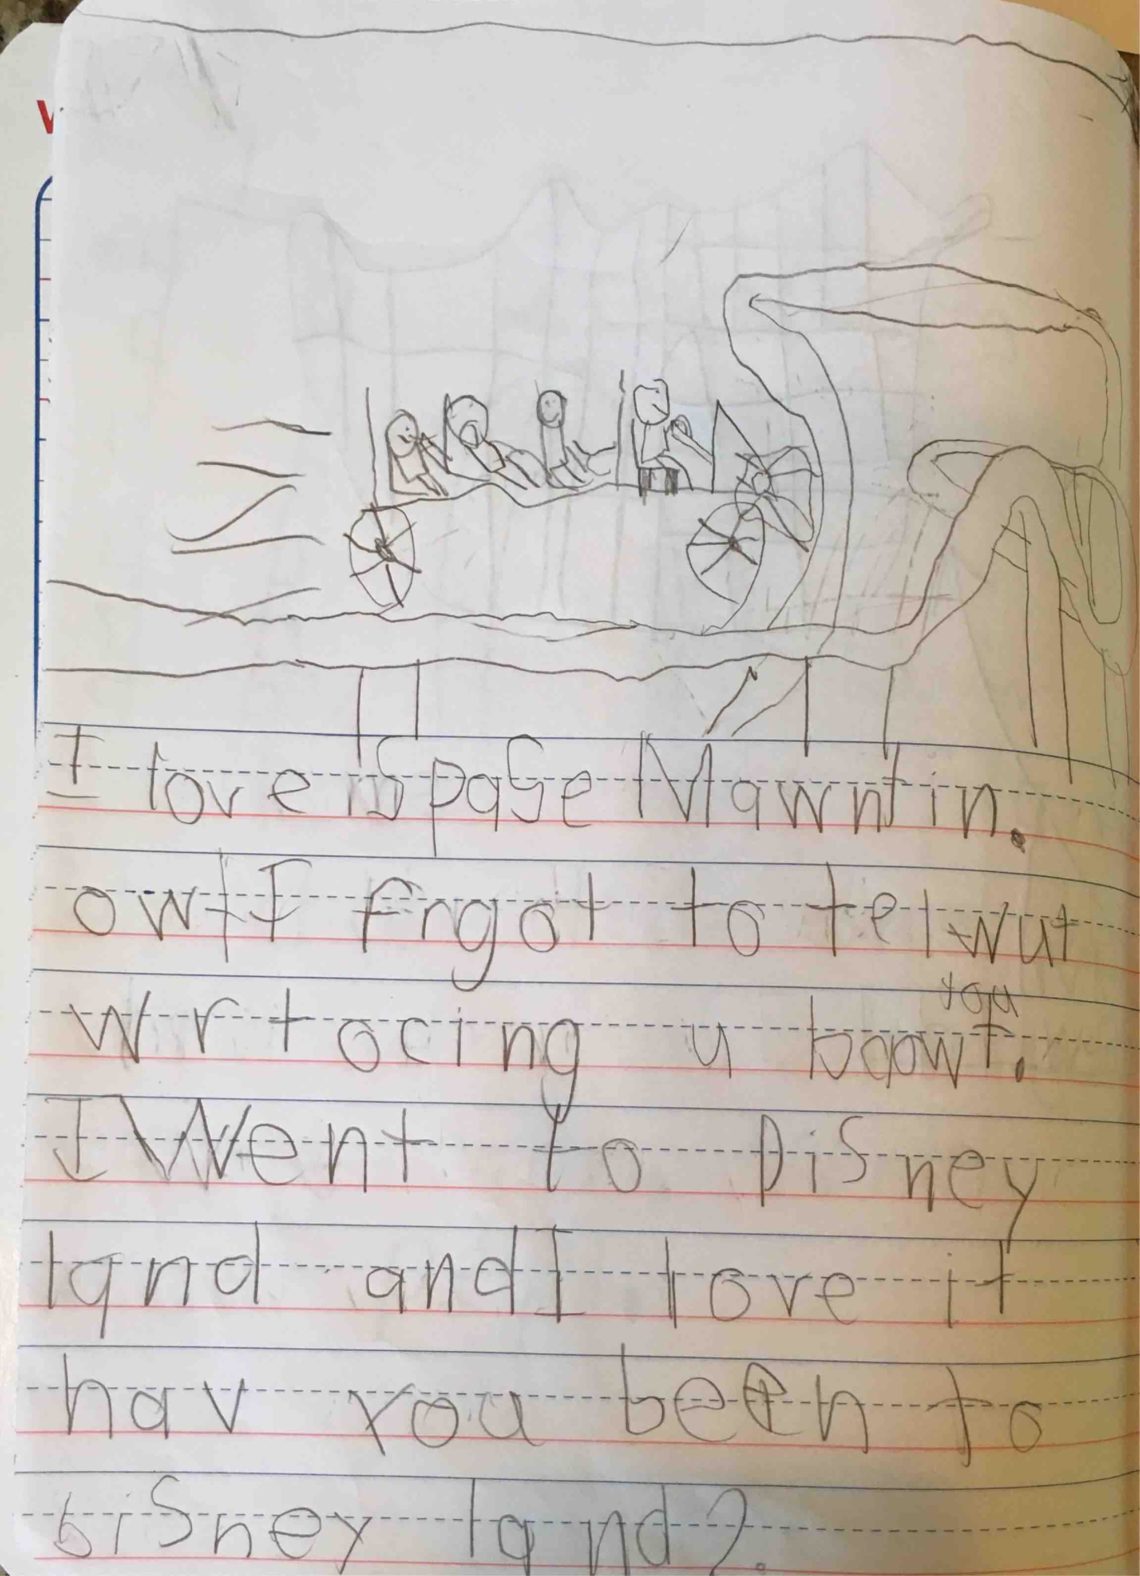 I love SpaSe Mawntin.
owt I frgot to tel wut
you
wr tocing u baowt.
I Went to DiSney
land and I love it
hav you been to
DiSney land?